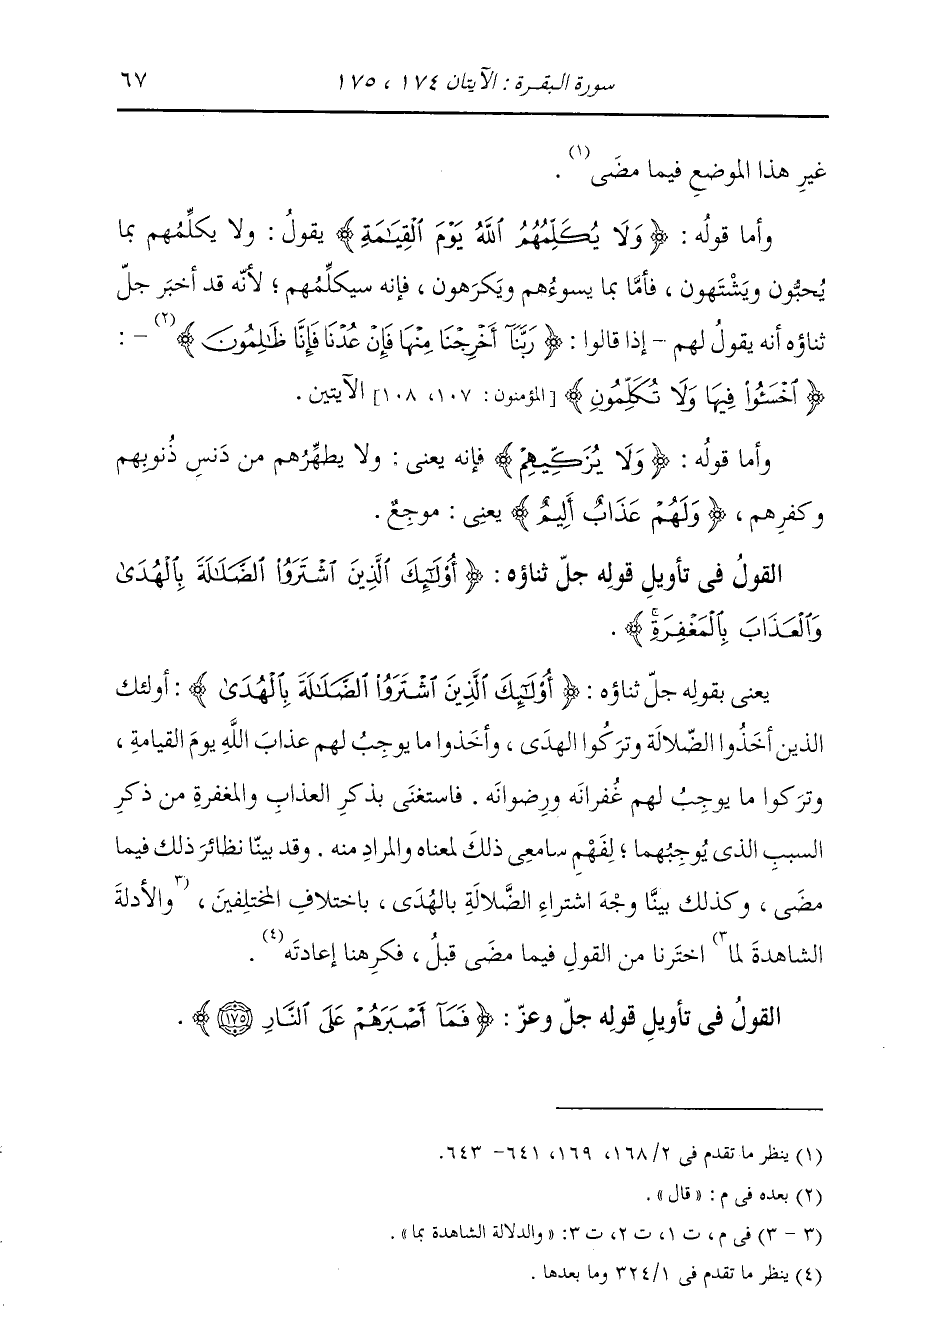 سورة البقرة : الآيتان ١٧٤ ، ١٧٥ ٦٧
غيرِ هذا الموضعِ فيما مضَى(١) .
وأما قولُه : ﴿ وَلَا يُكَلِّمُهُمُ ٱللَّهُ يَوْمَ ٱلْقِيَٰمَةِ ﴾ يقولُ : ولا يكلِّمُهم بما
يُحبُّون ويَشْتَهون ، فأمَّا بما يسوءُهم ويَكرَهون ، فإنه سيكلِّمُهم ؛ لأنَّه قد أخبَر جلّ
ثناؤه أنه يقولُ لهم – إذا قالوا : ﴿ رَبَّنَآ أَخْرِجْنَا مِنْهَا فَإِنْ عُدْنَا فَإِنَّا ظَٰلِمُونَ ﴾(٢) – :
﴿ ٱخْسَـُٔوا۟ فِيهَا وَلَا تُكَلِّمُونِ ﴾ [المؤمنون : ١٠٧، ١٠٨] الآيتين .
وأما قولُه : ﴿ وَلَا يُزَكِّيهِمْ ﴾ فإنه يعنى : ولا يطهِّرُهم من دَنسِ ذُنوبِهم
وكفرِهم ، ﴿ وَلَهُمْ عَذَابٌ أَلِيمٌ ﴾ يعنِى : موجِعٌ .
القولُ فى تأويلِ قولِه جلّ ثناؤه : ﴿ أُو۟لَٰٓئِكَ ٱلَّذِينَ ٱشْتَرَوُا۟ ٱلضَّلَٰلَةَ بِٱلْهُدَىٰ
وَٱلْعَذَابَ بِٱلْمَغْفِرَةِۚ ﴾ .
يعنى بقولِه جلّ ثناؤه : ﴿ أُو۟لَٰٓئِكَ ٱلَّذِينَ ٱشْتَرَوُا۟ ٱلضَّلَٰلَةَ بِٱلْهُدَىٰ ﴾ : أولئك
الذين أخَذُوا الضّلالَة وترَكُوا الهدَى ، وأخَذوا ما يوجِبُ لهم عذابَ اللَّهِ يومَ القيامةِ ،
وترَكوا ما يوجِبُ لهم غُفرانَه ورِضوانَه . فاستغنَى بذكرِ العذابِ والمغفرةِ من ذكرِ
السببِ الذى يُوجِبُهما ؛ لِفَهْمِ سامعِى ذلكَ لمعناه والمرادِ منه . وقد بينّا نظائرَ ذلك فيما
مضَى ، وكذلك بينَّا وجْهَ اشتراءِ الضَّلالَةِ بالهُدَى ، باختلافِ المختلِفينَ ، (٣والأدلةَ
الشاهدةَ لما٣) اختَرنا من القولِ فيما مضَى قبلُ ، فكرِهنا إعادتَه(٤) .
القولُ فى تأويلِ قولِه جلّ وعزّ : ﴿ فَمَآ أَصْبَرَهُمْ عَلَى ٱلنَّارِ ١٧٥ ﴾ .
(١) ينظر ما تقدم فى ١٦٨/٢، ١٦٩، ٦٤١– ٦٤٣.
(٢) بعده فى م : « قال » .
(٣ – ٣) فى م ، ت ١، ت ٢، ت ٣: « والدلالة الشاهدة بما » .
(٤) ينظر ما تقدم فى ٣٢٤/١ وما بعدها .